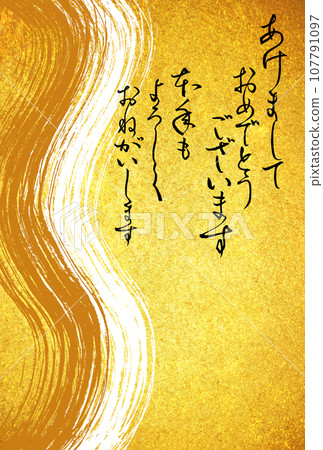 あけまして
おめでとう
ございます
本年も
よろしく
おねがいします
PIXTA
107791097